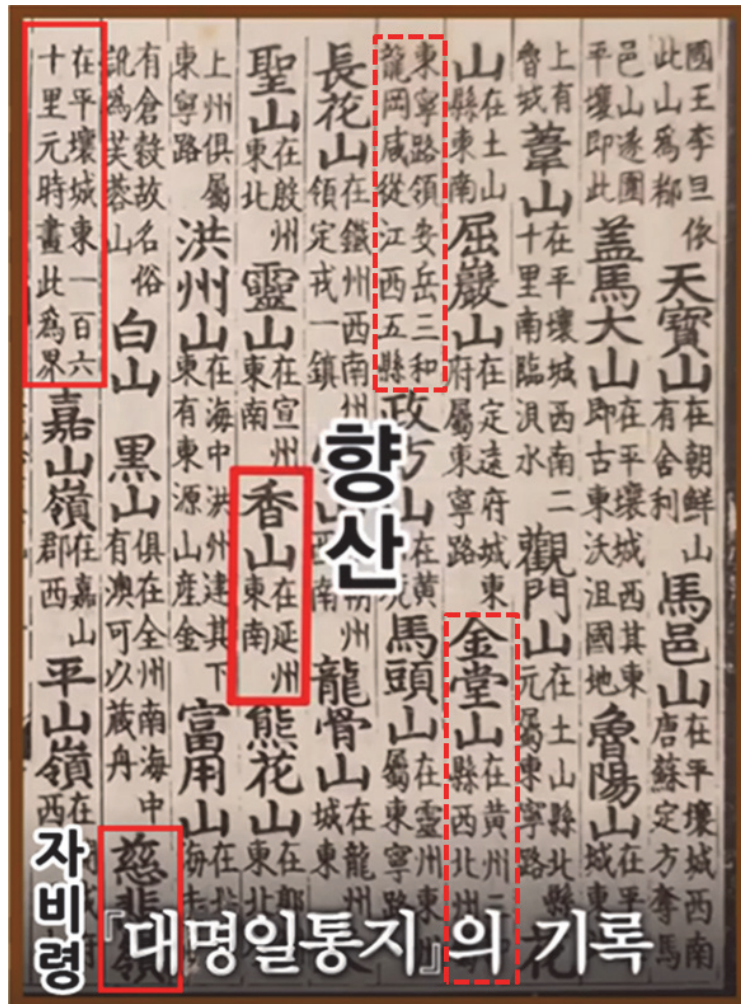 國王李旦
此山爲
天寶山 在朝鮮山 有舍利 馬邑山 在平壤城西南 唐蘇定方奪馬
邑山遂圍 平壤即此 蓋馬大山 在平壤城西其東 即古東沃沮國地 魯陽山 在平 城東
上有 魯城 葦山 在平壤城西南二 十里南臨浿水 觀門山 在土山縣北縣 元屬東寧路 花
山 在土山 縣東南 屈巖山 在定遠府城東 府屬東寧路 金堂山 在黃州二 縣西北州
東寧路領安岳三和 龍岡咸從江西五縣 政方山 在黃 馬頭山 在靈州東 屬東寧路
長花山 在鐵州西南州 領定戎一鎮 山 州 南 龍骨山 在龍州 城東
聖山 在殷州 東北 靈山 在宣州 東南 香山 在延州 東南 熊花山 在郭 東北
上州俱屬 東寧路 洪州山 在海中洪州建其下 東有東源山産金 富用山 在
有倉穀故名俗 訛爲芙蓉山 白山 黒山 俱在全州南海中 有澳可以藏舟 慈悲嶺
在平壤城東一百六 十里元時畫此爲界 嘉山嶺 在嘉山 郡西 平山嶺 在 西
향산
자비령
『대명일통지』의 기록